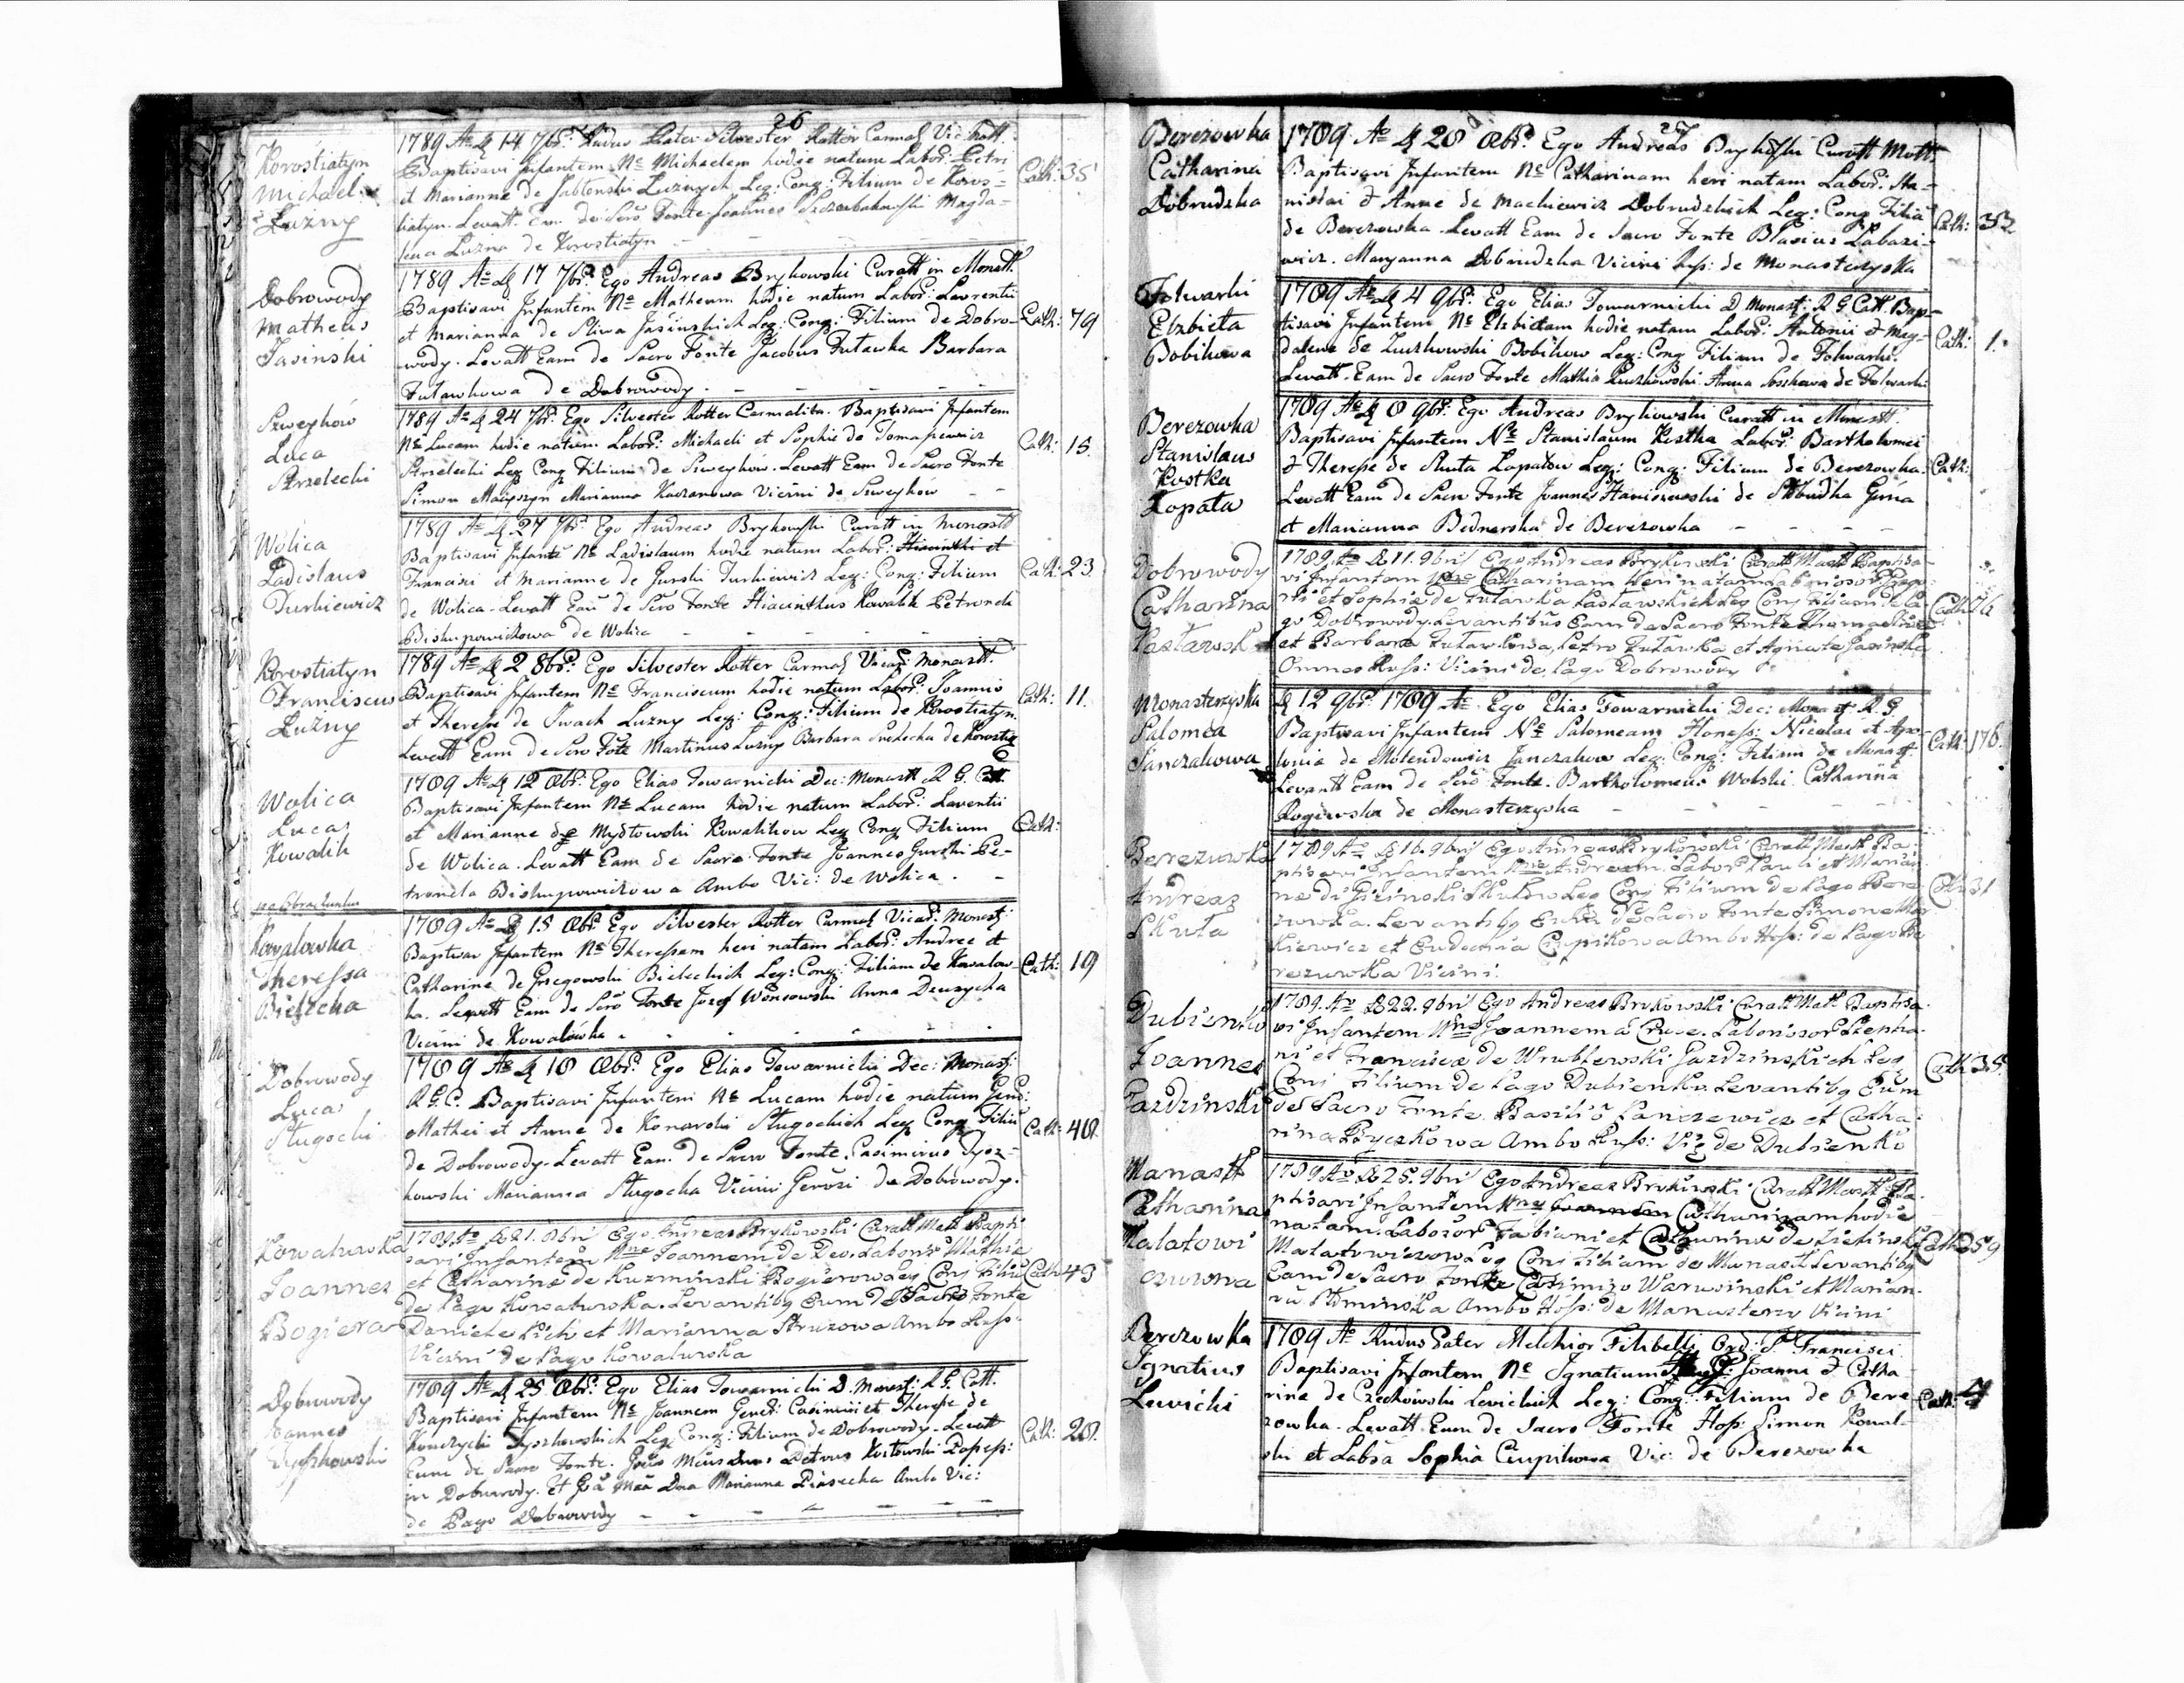 26
Korostiatyn
Michael
Luzny
1789 Aº D 14 7br: Rndus Pater Silvester Rotter Carmel Vic: Mott.
Baptisavi Infantem Nº Michaelem hodie natum Labor: Petri
et Marianne de Jablonski Luznych Leg: Cong: Filium de Koros=
tiatyn. Levatt Eum de Scro Fonte Joannes Szczerbakowski Magda=
lena Luzna de Korostiatyn
Cath: 35
Dobrowody
Matheus
Jasinski
1789 Aº D 17 7br: Ego Andreas Brykowski Curatt in Monast.
Baptisavi Infantem Nº Matheum hodie natum Labor: Laurentii
et Marianna de Sliwa Jasinskich Leg: Cong: Filium de Dobro=
wody. Levatt Eam de Sacro Fonte Jacobus Futawka Barbara
Futawkowa de Dobrowody.
Cath: 79
Szweyków
Luca
Strzelecki
1789 Aº D 24 7br: Ego Silvester Rotter Carmelita. Baptisavi Infantem
Nº Lucam hodie natum Labor: Michaeli et Sophie de Tomaszewicz
Strzelecki Leg Cong Filium de Szweyków. Levatt Eam de Sacro Fonte
Simon Marianna Kaczanowa Vicini de Szweyków
Cath: 15.
Wolica
Ladislaus
Turkiewicz
1789 Aº D 27 7br: Ego Andreas Brykowski Curatt in Monast
Baptisavi Infantē Nº Ladislaum hodie natum Labor: et
Francisci et Marianne de Gurski Turkiewicz Leg: Cong: Filium
de Wolica. Levatt Eam de Scro Fonte Hiacinthus Kowalik Petronela
Biskupowiczowa de Wolica
Cath: 23.
Korostiatyn
Franciscus
Luzny
1789 Aº D 2 8br: Ego Silvester Rotter Carmel Vicar: Monast.
Baptisavi Infantem Nº Franciscum hodie natum Labor: Joannis
et Theresse de Iwach Luzny Leg: Cong: Filium de Korostiatyn
Levatt Eam de Scro Fote Martinus Luzny Barbara Suchecka de Korostiy
Cath: 11.
Wolica
Lucas
Kowalik
1789 Aº D 12 8br: Ego Elias Towarnicki Dec: Monast R. G. Catt.
Baptisavi Infantem Nº Lucam hodie natum Labor: Laventii
et Marianne de Mystowski Kowalikow Leg Cong Filium
de Wolica. Levatt Eam de Sacro Fonte Joannes Gurski Pe=
tronela Biskupowiczowa Ambo Vic: de Wolica.
Cath:
Kowalowka
Theressa
Bielecka
1789 Aº D 15 8br Ego Silvester Rotter Carmel Vicar: Monast:
Baptisav Infantem Nº Theressem heri natam Labor: Andree et
Catharine de Gregowski Bieleckich Leg: Cong: Filiam de Kowalow
ka. Levatt Eam de Scro Fonte Jozef Wonsowski Anna Druzycka
Vicini de Kowalówka.
Cath: 19
Dobrowody
Lucas
Slugocki
1789 Aº D 18 8br: Ego Elias Towarnicki Dec: Monast:
R.G.C. Baptisavi Infantem Nº Lucam hodie natum Gene:
Mathei et Anne de Konarski Slugockich Leg Cong Filiū
de Dobrowody. Levatt Eam de Sacro Fonte Casimirus Tysz=
kowski Marianna Slugocka Vicini Gerosi de Dobrowody.
Cath: 48.
Kowaluwka
Joannes
Bogiera
1789. Aº D 21. 8bri Ego Andreas Brykowski Curatt Mast Bapti
savi Infantem Nne Joannem de Deo. Labor: Mathie
et Catharine de Kuzminski Bogierow Leg Conj Filiū
de Pago Kowaluwka. Levantibq Eum De Sacro Fonte
Daniele Lich et Marianna Struzowa Ambo Russ.
Vicini de Pago Kowaluwka
Cath 43
Dobrowody
Joannes
Tyszkowski
1789 Aº D 25 8br: Ego Elias Towarnicki D. Monast: R. G. Catt.
Baptisavi Infantem Nº Joannem Gener: Casimiri et Therese de
Konczycki Tyszkowskich Leg Cong: Filium de Dobrowody. Levatt
Eum de Sacro Fonte. Petrus Kostowski
in Dobrowody. et Dna Marianna Piasecka Ambo Vic:
de Pago Dobrowody
Cath: 28.
27
Berezowka
Catharina
Dobrudzka
1789 Aº D 28 8br: Ego Andreas Brykowski Curatt Mott.
Baptisavi Infantem Nº Catharinam heri natam Labor. Sta=
nislai & Anne de Mackiewicz Dobrudzkich Leg: Cong Filiā
de Berezowka. Levatt Eam de Sacro Fonte Blasius Labazi=
wicz. Maryanna Dobrudzka Vicini Rus: de Monasterzyska
Cath: 32
Folwarki
Elzbieta
Bobikowa
1789 Aº D 4 9br: Ego Elias Towarnicki D Monast: R G Catt. Bap=
tisavi Infantem Nº Elzbietam hodie natam Labor: Antonii & Mag=
dalene de Luczkowski Bobikow Leg: Cong Filiam de Folwark.
Levatt. Eam de Sacro Fonte Mathia Luczkowski Anna Soskowa de Folwark
Cath: 1.
Berezowka
Stanislaus
Kostka
Lopata
1789 Aº D 8 9br: Ego Andreas Brykowski Curatt in Monast.
Baptisavi Infantem Nº Stanislaum Kostka Labor: Bartholomei
& Therese de Smta Lopatow Leg: Cong: Filium de Berezowka.
Levatt Eam de Sacro Fonte Joannes Haniszewski de Slobudka Gurna
et Marianna Bednarska de Berezowka
Cath:
Dobrowody
Catharina
Kaslawsk
1789. Aº D 11. 9bris Ego Andreas Brykowski Curatt Mast Baptisa
vi Infantem Nne Catharinam Heri natam Laboriosor Grego
rii et Sophia de Futawka Kaslawskich Leg Conj Filiam de Pa
go Dobrowody. Levantibus Eam de Sacro Fonte
et Barbara Futawkowa, Petro Futawka et Agneta Jasinska
Omnes Russ: Vicini de Pago Dobrowody
Monasterzyska
Salomea
Janczakowa
D 12 9br: 1789 Aº Ego Elias Towarnicki Dec: Monast: R. G
Baptisavi Infantem Nº Salomeam Honess: Nicolai et Apo=
lonia de Molendowicz Janczakow Leg: Cong: Filiam de Monast
Levantt Eam de Scro Fonte. Bartholomeus Wolski. Catharina
Rogowska de Monasterzyska
Cath: 176.
Berezuwka
Andreas
Skuła
1789 Aº D 16. 9bris Ego Andreas Brykowski Curatt Mast Ba
ptisavi Infantem Nne Andream. Labor Pauli et Marian
ne di Gizinski Skułow Leg Conj Filium de Pago Bere
zuwka. Levantibq Eum de Sacro Fonte Simone Mac
kiewicz et Eudochia Czupikowa Ambo Hoss: de Pago Be
rezuwka Vicini.
Cath 31
Dubienko
Joannes
Gazdzinski
1789. Aº D 22. 9bris Ego Andreas Brykowski Curatt Mast Baptisa
vi Infantem Nne Joannem a Cruce. Laboriosor Stepha
ni et Francisca de Wrublewski Gazdzinskich Leg
Conj Filium de Pago Dubienko. Levantibq Eum
de Sacro Fonte. Basilio Panczewicz et Catha
rina Ambo Russ: Viz de Dubienko
Cath 35.
Manastt
Catharina
Malatowi
czuwna
1789 Aº D 25. 9bris Ego Andreas Brykowski Curatt Mastt Ba
ptisavi Infantem Nne Catharinam hodie
natam. Laborsor Fabiani et Catharina de
Malatowiczow Leg Conj Filiam de Manast Levantibq
Eam de Sacro Fonte Casimiro Warwinski et Marian
na Slominska Ambo Hoss: de Manasterzo Vicini
Cath 259
Berezowka
Ignatius
Lewicki
1789 Aº Rndus Pater Melchior Filibelli Ord: S. Francisci
Baptisavi Infantem Nº Ignatium Joanni & Catha
rina de Czechowski Lewickich Leg: Cong: Filium de Bere
zowka. Levatt Eum de Sacro Fonte Hoss: Simon Kowal=
ski et Labsa Sophia Czupikowa Vic: de Berezowka
Cath: